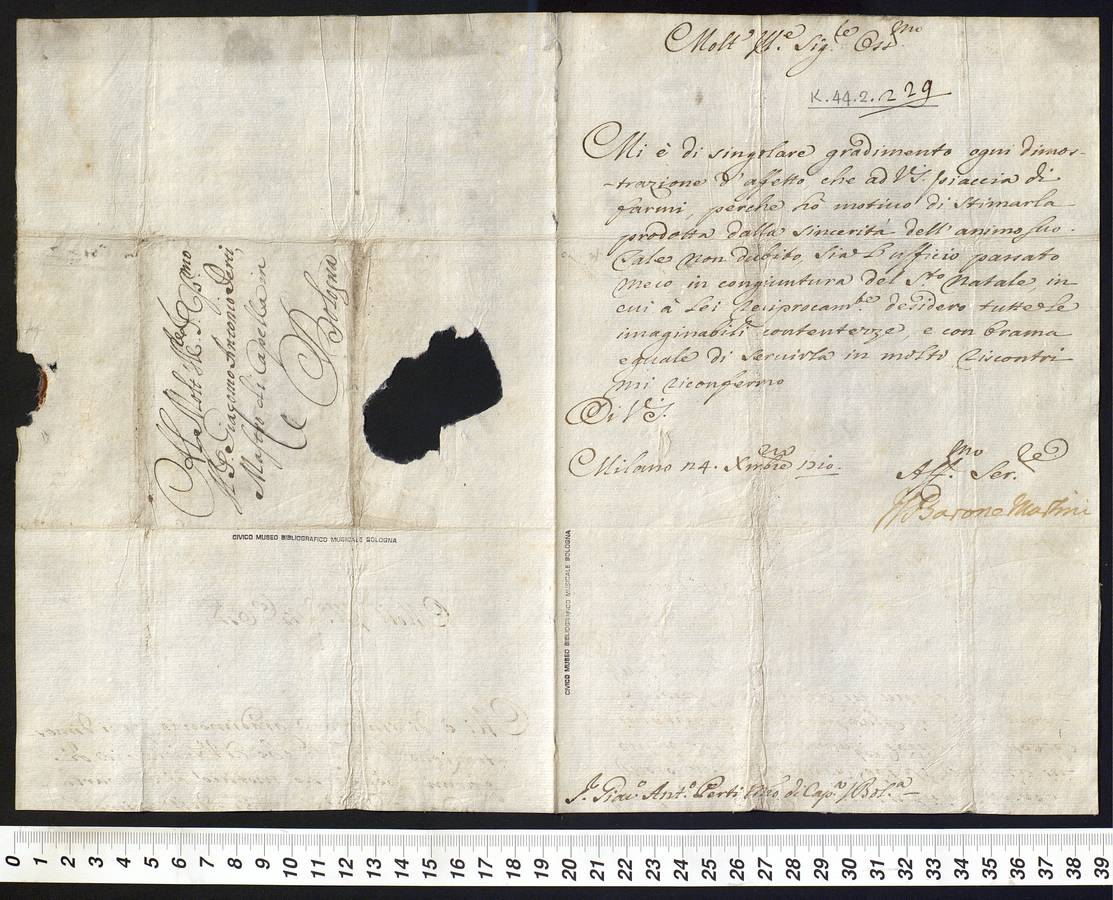 Molt' Ill.e Sig.re Oss.mo
K.44.2.229
Mi è di singolare gradimento ogni dimos-
-trazione d'affetto, che ad V.S. piaccia di
farmi, perche hò motiuo di stimarla
prodotta dalla sincerità dell'animo suo.
Tale non dubito, sia l'ufficio passato
meco in congiuntura del S.to Natale in
cui à Lei reciprocam.te desidero tutte le
imaginabili contentezze, e con brama
eguale di seruirla in molti riscontri
mi riconfermo
Di V.S.
Milano 24. Xmbre 1710.
Aff.mo Ser.re
Il Barone Martini
S.r Giac.o Ant.o Perti M.ro di Cap.a / Bol.a
All Molt Ill.re Sig.r Oss.mo
Il S. Giacomo Antonio Perti,
Mastro di Capella in
Bologna
CIVICO MUSEO BIBLIOGRAFICO MUSICALE BOLOGNA
CIVICO MUSEO BIBLIOGRAFICO MUSICALE BOLOGNA
0 1 2 3 4 5 6 7 8 9 10 11 12 13 14 15 16 17 18 19 20 21 22 23 24 25 26 27 28 29 30 31 32 33 34 35 36 37 38 39